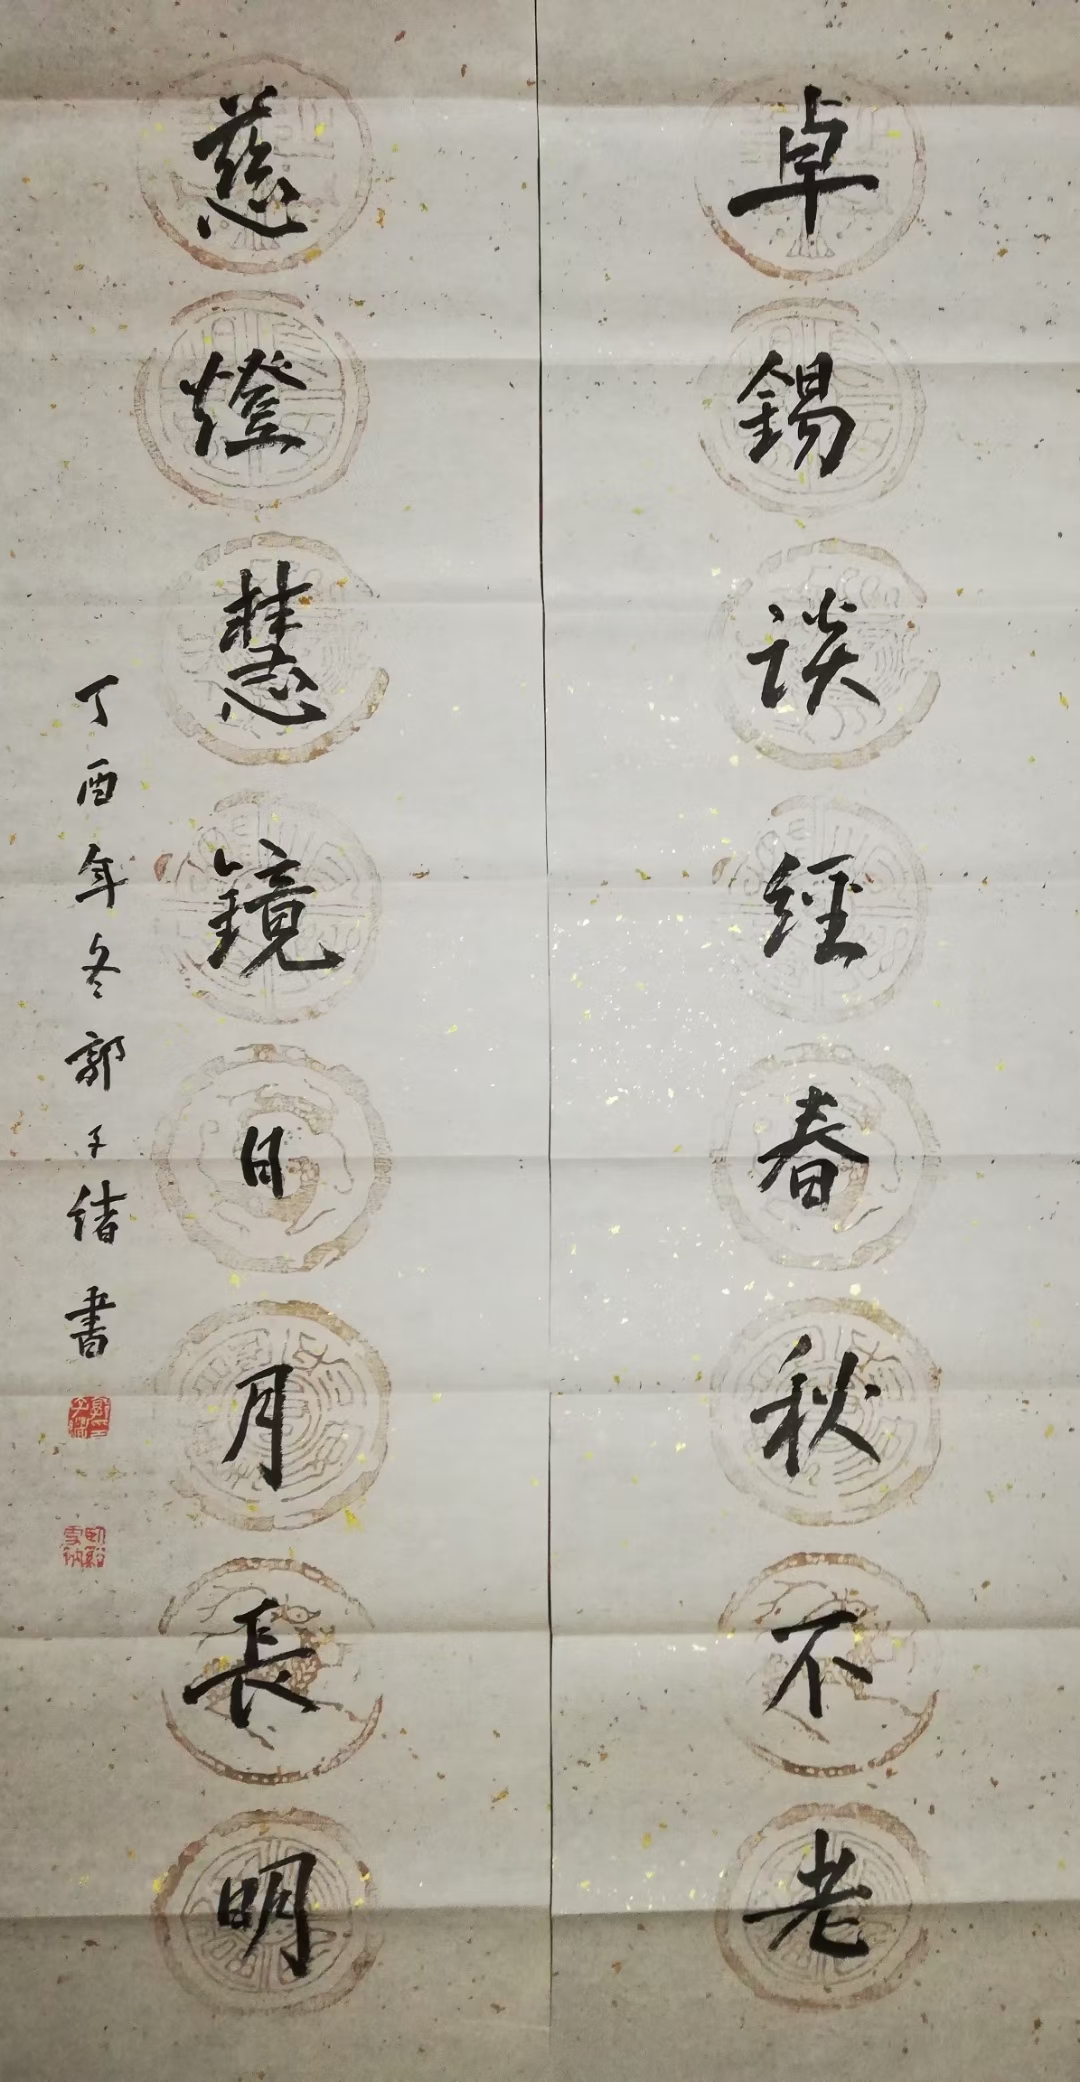 卓錫談經春秋不老
慈燈慧鏡日月長明
丁酉年冬郭子緒書